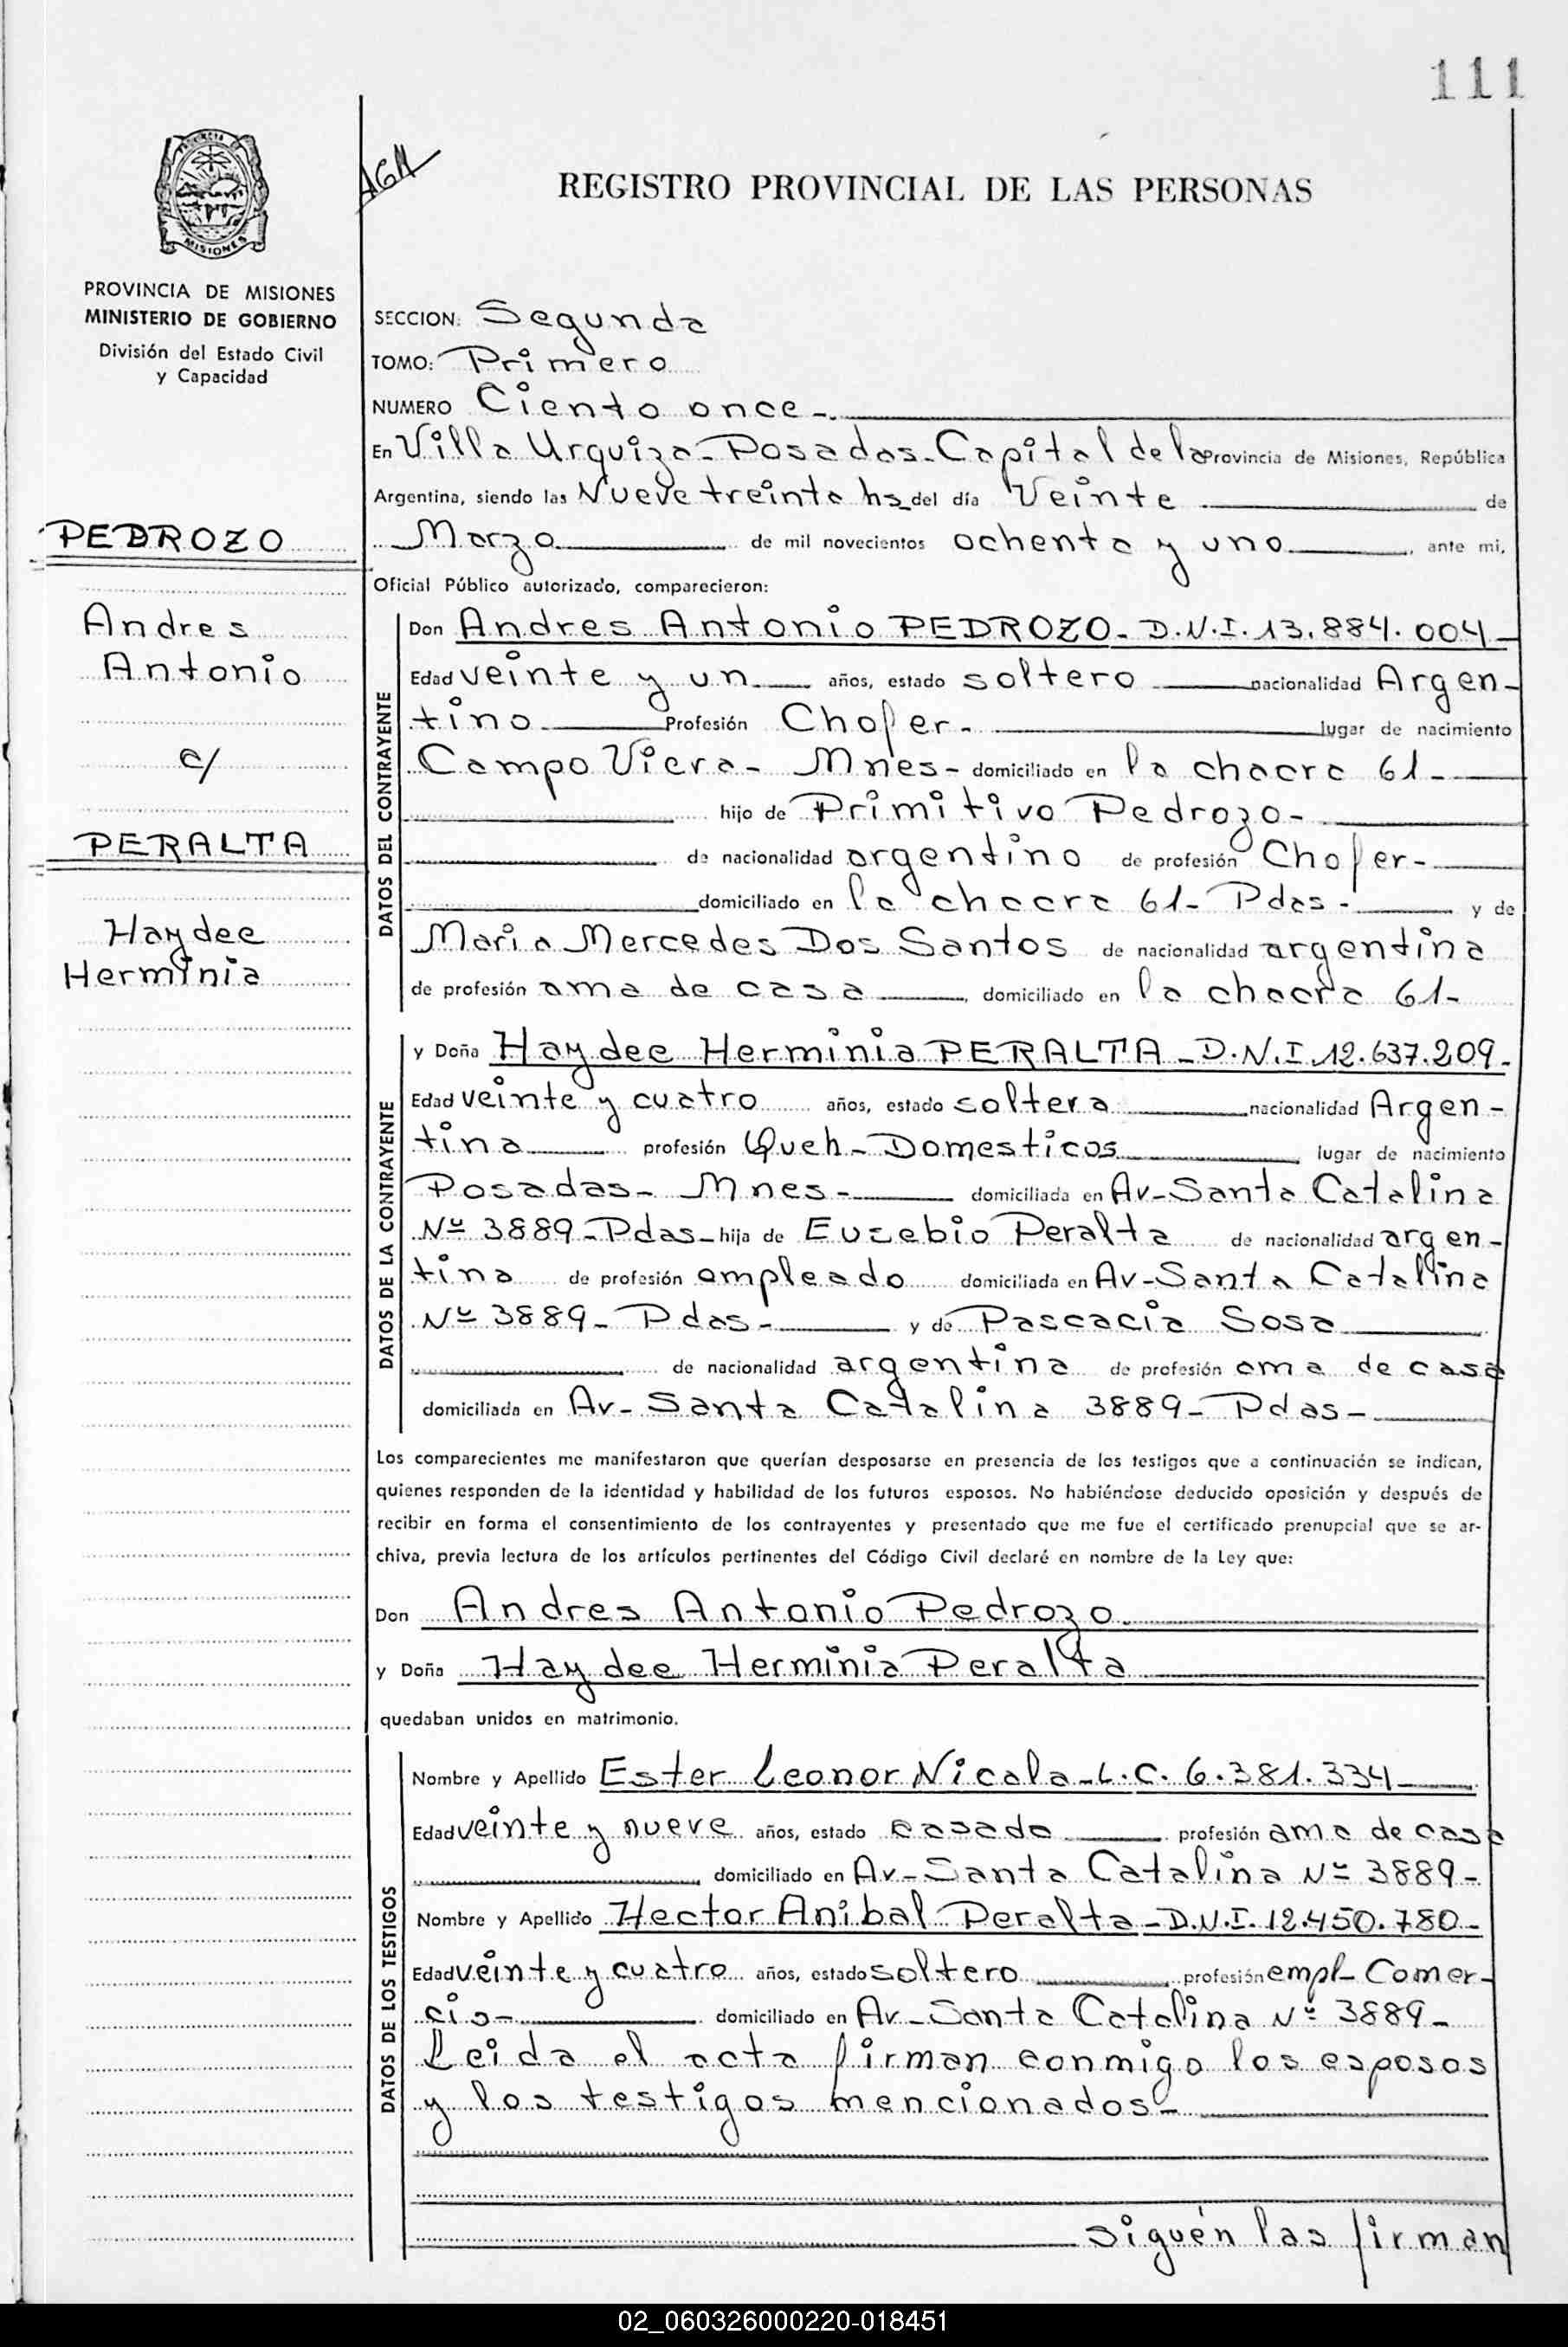 111
AGN
REGISTRO PROVINCIAL DE LAS PERSONAS
PROVINCIA
MISIONES
PROVINCIA DE MISIONES
MINISTERIO DE GOBIERNO
División del Estado Civil
y Capacidad
PEDROZO
Andres
Antonio
c/
PERALTA
Haydee
Herminia
SECCION: Segunda
TOMO: Primero
NUMERO Ciento once -
En Villa Urquiza - Posadas - Capital de la Provincia de Misiones, República
Argentina, siendo las Nueve treinta hs del día Veinte de
Marzo de mil novecientos ochenta y uno, ante mi,
Oficial Público autorizado, comparecieron:
DATOS DEL CONTRAYENTE
Don Andres Antonio PEDROZO - D.N.I. 13.884.004 -
Edad veinte y un años, estado soltero nacionalidad Argen-
tino Profesión Chofer - lugar de nacimiento
Campo Viera - Mnes - domiciliado en la chacra 61 -
hijo de Primitivo Pedrozo -
de nacionalidad argentino de profesión Chofer -
domiciliado en la chacra 61 - Pdas - y de
Maria Mercedes Dos Santos de nacionalidad argentina
de profesión ama de casa, domiciliado en la chacra 61 -
DATOS DE LA CONTRAYENTE
y Doña Haydee Herminia PERALTA - D.N.I. 12.637.209 -
Edad veinte y cuatro años, estado soltera nacionalidad Argen-
tina profesión Queh - Domesticos lugar de nacimiento
Posadas - Mnes - domiciliada en Av - Santa Catalina
Nº 3889 - Pdas - hija de Eusebio Peralta de nacionalidad argen-
tina de profesión empleado domiciliada en Av - Santa Catalina
Nº 3889 - Pdas - y de Pascacia Sosa
de nacionalidad argentina de profesión ama de casa
domiciliada en Av - Santa Catalina 3889 - Pdas -
Los comparecientes me manifestaron que querían desposarse en presencia de los testigos que a continuación se indican,
quienes responden de la identidad y habilidad de los futuros esposos. No habiéndose deducido oposición y después de
recibir en forma el consentimiento de los contrayentes y presentado que me fue el certificado prenupcial que se ar-
chiva, previa lectura de los artículos pertinentes del Código Civil declaré en nombre de la Ley que:
Don Andres Antonio Pedrozo
y Doña Haydee Herminia Peralta
quedaban unidos en matrimonio.
DATOS DE LOS TESTIGOS
Nombre y Apellido Ester Leonor Nicala - L.C. 6.381.334
Edad veinte y nueve años, estado casada profesión ama de casa
domiciliado en Av - Santa Catalina Nº 3889 -
Nombre y Apellido Hector Anibal Peralta - D.N.I. 12.450.780 -
Edad veinte y cuatro años, estado soltero profesión empl - Comer-
cio - domiciliado en Av - Santa Catalina Nº 3889 -
Leida el acta firman conmigo los esposos
y los testigos mencionados -
siguen las firman
02_060326000220-018451